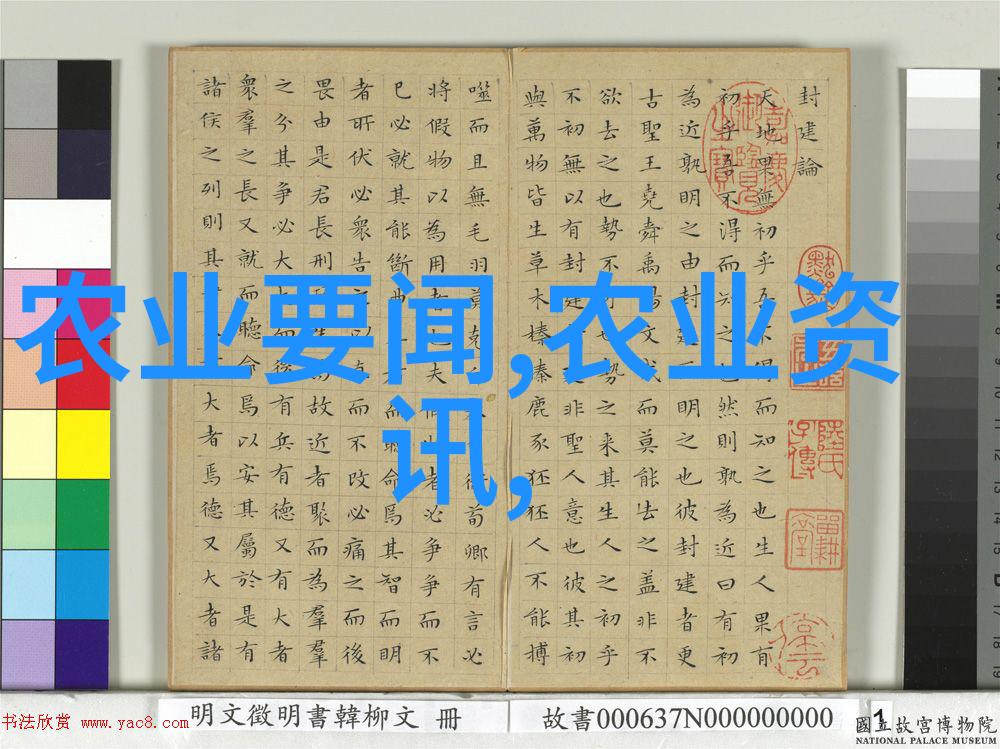 封建論
天地果無初乎吾不得而知之也生人果有
初乎吾不得而知之也然則孰為近曰有初
為近孰明之由封建而明之也彼封建者更
古聖王堯舜禹湯文武而莫能去之蓋非不
欲去之也勢不可也勢之來其生人之初乎
不初無以有封建封建非聖人意也彼其初
與萬物皆生草木榛榛鹿豕狉狉人不能搏
噬而且無毛羽莫克自奉自衛荀卿有言必
將假物以為用者也夫假物者必爭爭而不
已必就其能斷曲直者而聽命焉其智而明
者所伏必衆告之以直而不改必痛之而後
畏由是君長刑政生焉故近者聚而為羣
之分其爭必大大而後有兵有德又有大者
衆羣之長又就而聽命焉以安其屬於是有
諸侯之列則其
大者焉德又大者諸
农业要闻,农业资
讯,
書法欣赏 www.yac8.com
明文徵明書韓柳文 冊
故書000637N000000000
1
國立故宮博物院
NATIONAL PALACE MUSEUM